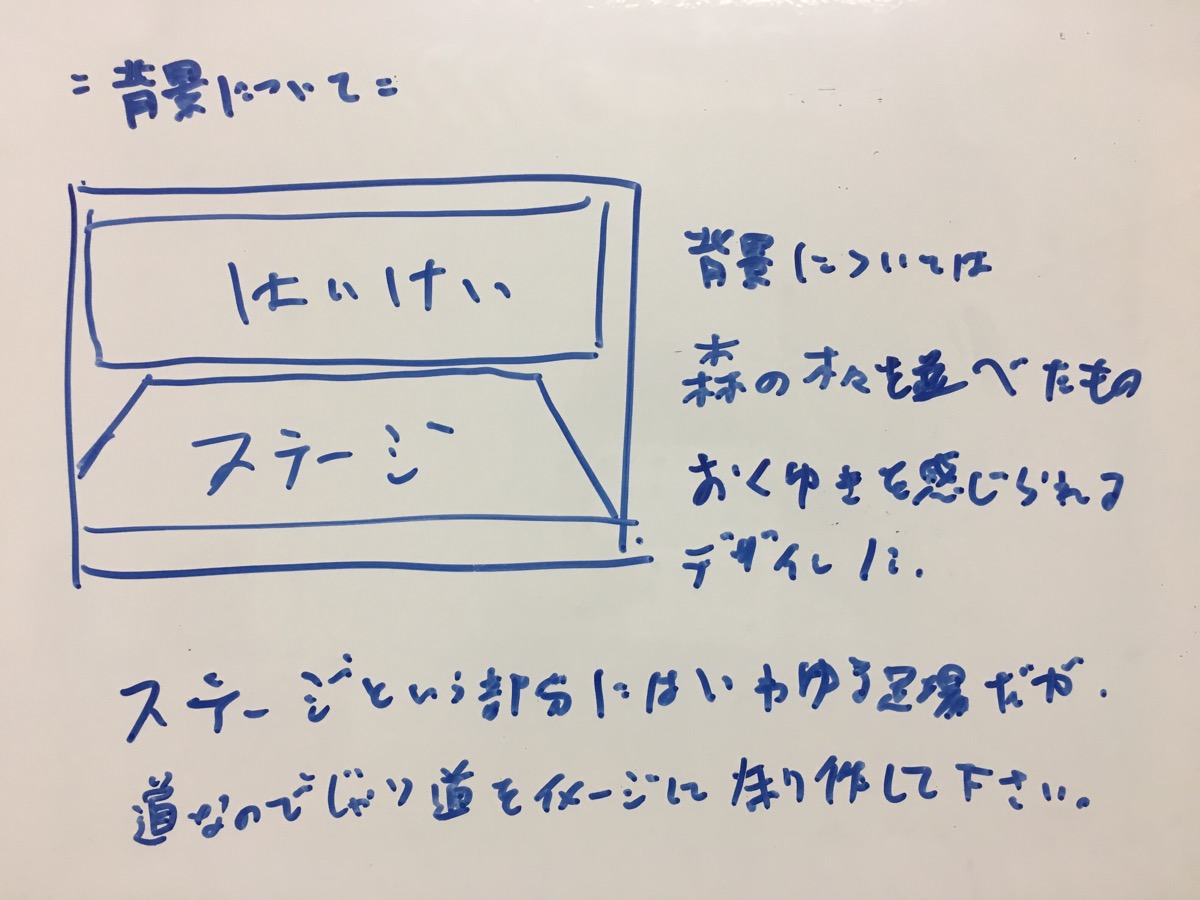 =背景について=
はいけい
ステージ
背景については
森の木々を並べたもの
おくゆきを感じられる
デザインに.
ステージという部分にはいわゆる足場だが.
道なのでじゃり道をイメージに 作して下さい。